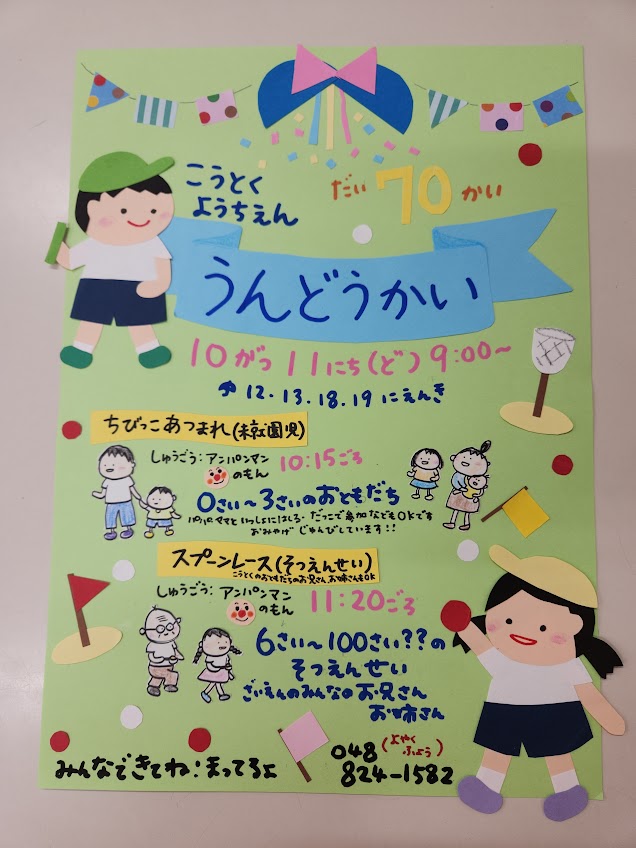 こうとく
ようちえん
だい 70 かい
うんどうかい
10がつ 11にち(ど) 9:00〜
12.13.18.19 にえんき
ちびっこあつまれ(未就園児)
しゅうごう:アンパンマン
のもん
10:15ごろ
0さい〜3さいのおともだち
パパ・ママといっしょにはしろ・だっこで参加などもOKです
おみやげ じゅんびしています!!
スプーンレース(そつえんせい)
こうとくのおともだちのお兄さん、お姉さんもOK
しゅうごう:アンパンマン
のもん
11:20ごろ
6さい〜100さい??の
そつえんせい
ざいえんのみんなのお兄さん
お姉さん
みんなできてね!まってるよ
048 (よやく
ふよう)
824-1582